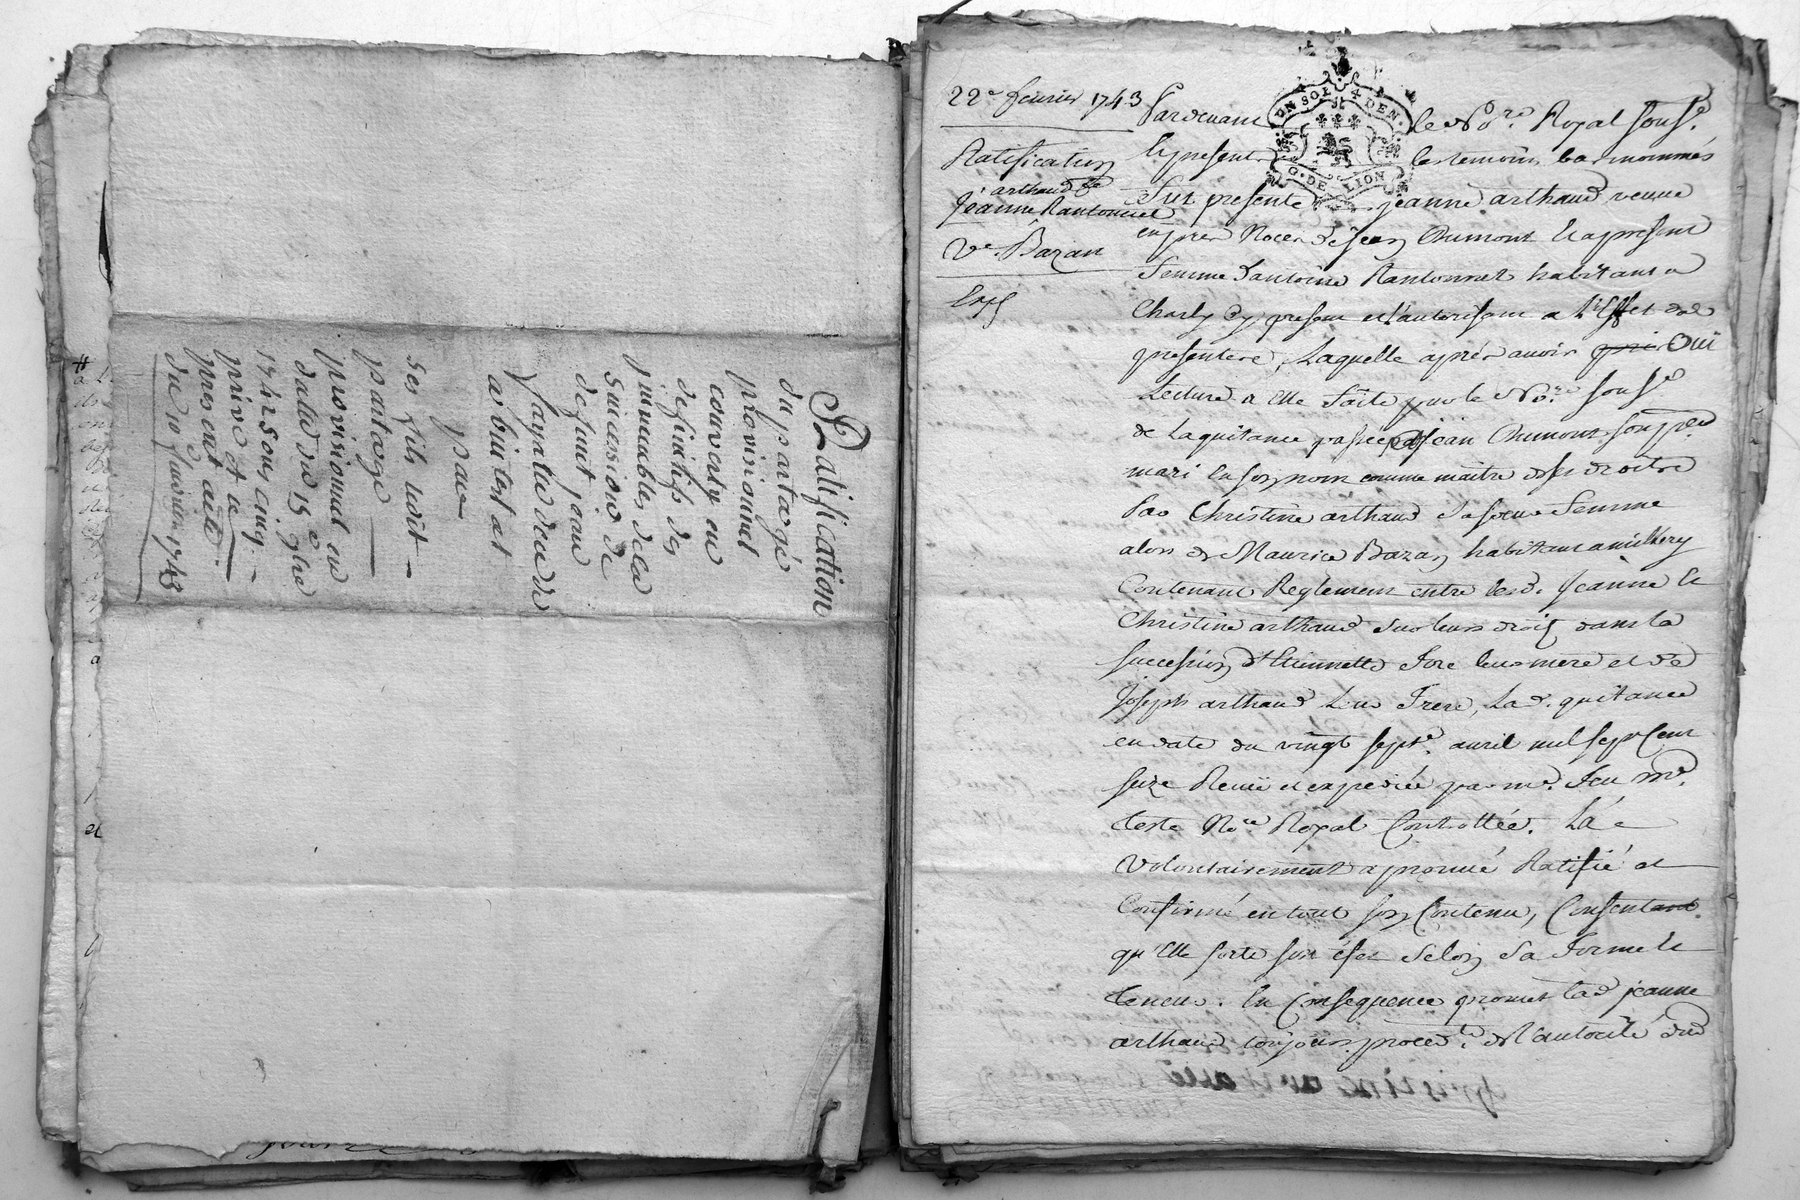 Ratification
du partage
provisionnel
converty en
definitif des
immeubles de la
succession de
defunt jean
fayolle decedé
ab intestat
par
ses fils ledit
partage
provisionnel en
datte du 15e xbre
1742 sous cing
privé et le
present acte
du 10 fevrier 1743
22e fevrier 1743
Ratification
arthaud fe
jeanne Rantonnet
Ve. Bazan
Exp
UN SOL 4 DEN.
G. DE LION
Pardevant le No.re Royal sousé.
Et presents les temoins bas nommés
Fut presente jeanne arthaud veuve
en pres Noces de Jean Chumont Et a present
femme d'antoine Rantonnet habitant a
Charly Cy present et l'autorisant a l'Effet des
presentes, Laquelle aprés avoir pris Oui
Lecture a Elle faite par le No.re sousé
de La quitance passée a Jean Chumont son per
mari En son nom comme maitre des droits
Par Christine arthaud sa soeur femme
alors de Maurice Bazan habitant a millery
Contenant Reglement entre lesd. Jeanne Et
Christine arthaud sur leurs droits dans la
succession d'Etiennette Jore leur mere et de
Joseph arthaud Leur Frere, La d. quitance
en date du vingt sept.e avril mil sept Cent
seize Recüe et expediée par me. feu Me.
teste No.re Royal Controllée. Là
volontairement aprouvé Ratifié et
Confirmé en tout son Contenu, Consentant
qu'Elle sorte son éfet selon sa forme Et
teneur. En Consequence promet lad jeanne
arthaud toujours proced.te de l'autorité dud